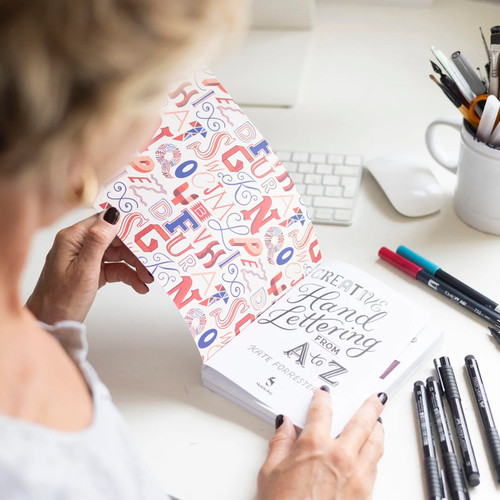 CREATIVE
Hand
Lettering
FROM
A to Z
KATE FORRESTER